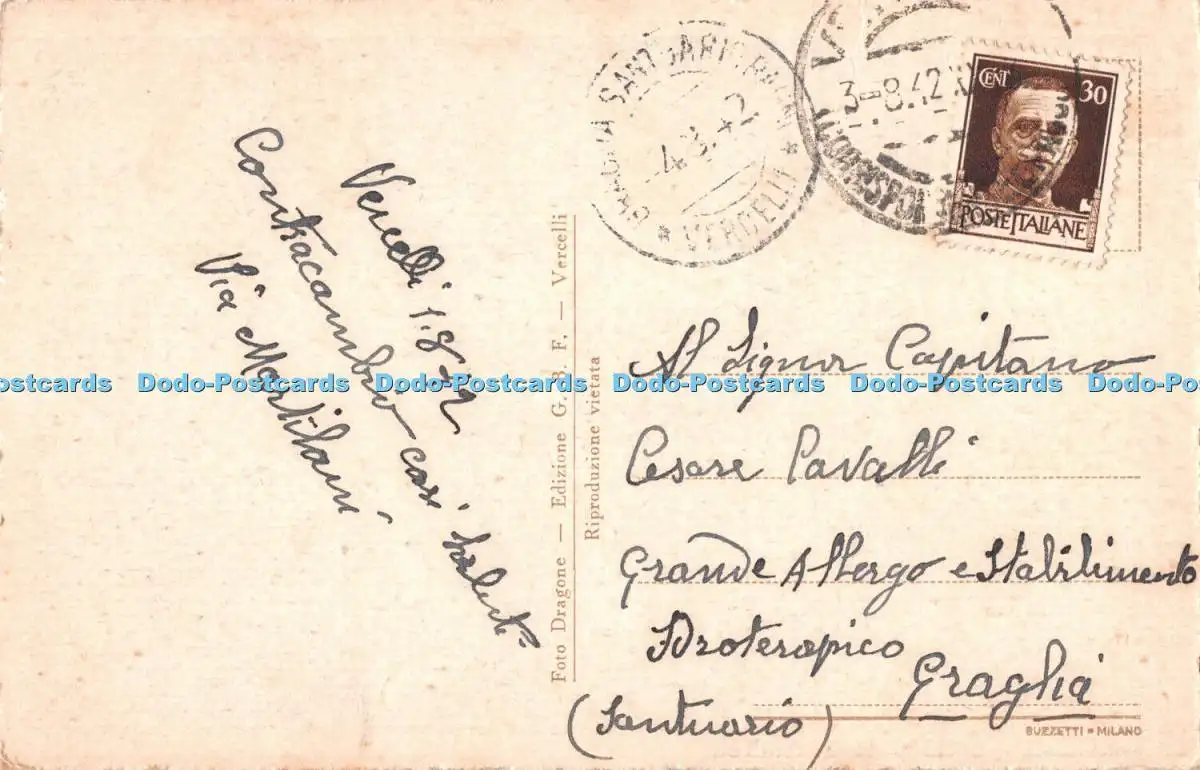 Vercelli 1.8.42
Contracambio cari saluti
GRAGLIA SANTUARIO
4.8.42
* VERCELLI *
3-8.42
CENT 30
POSTE ITALIANE
Al Signor Capitano
Cesare Cavalli
Grande Albergo e Stabilimento
Idroterapico
Graglia
(Santuario)
Foto Dragone — Edizione G. B. F. — Vercelli
Riproduzione vietata
BUZZETTI - MILANO
Dodo-Postcards Dodo-Postcards Dodo-Postcards Dodo-Postcards Dodo-Postcards